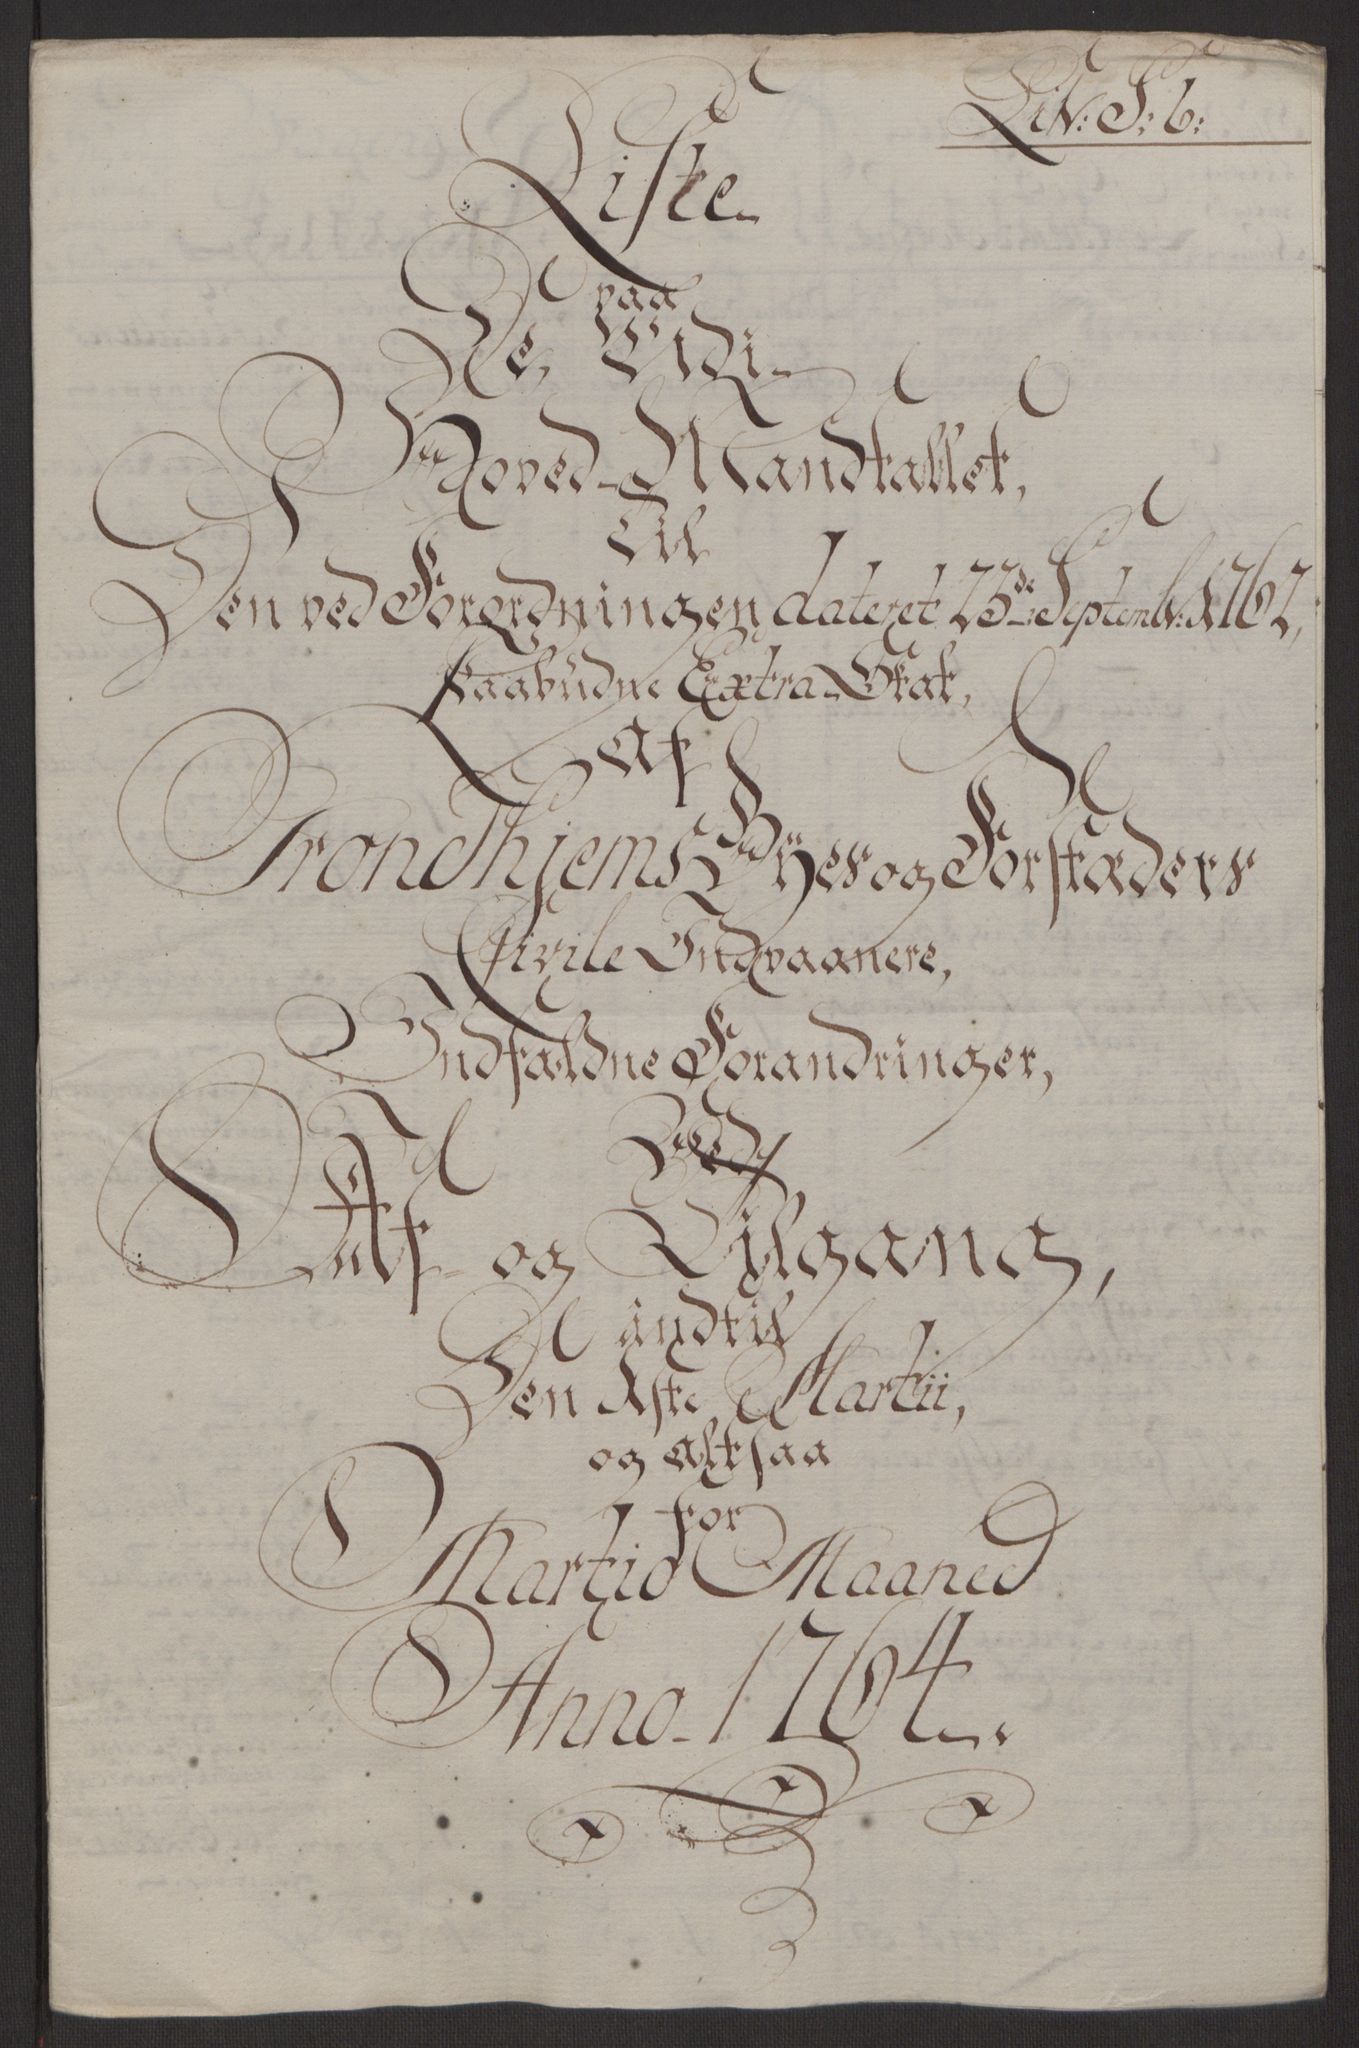 Lit: S: 6:
Liste
paa
De, Udi
Hoved-Mandtallet,
Til
Den ved Forordningen dateret 23de Septembr: 1762,
paabudne Extra-Skat,
Af
Trondhjems Byes og Forstæders
Civile Indvaanere,
Indfaldne Forandringer,
Ved
Af- og Tilgang,
indtil
Den 1ste Martii,
og altsaa
for
Martio Maaned
Anno 1764.